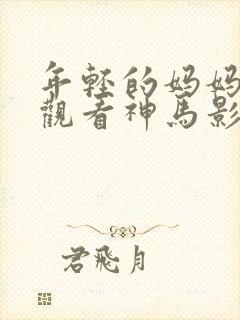 年轻的妈妈
觀看神馬影
君飛月